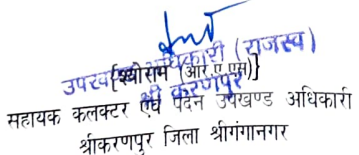 उपखण्ड अधिकारी (राजस्व)
{श्योराम (आर ए एस)}
श्री करणपुर
सहायक कलक्टर एवं पदेन उपखण्ड अधिकारी
श्रीकरणपुर जिला श्रीगंगानगर